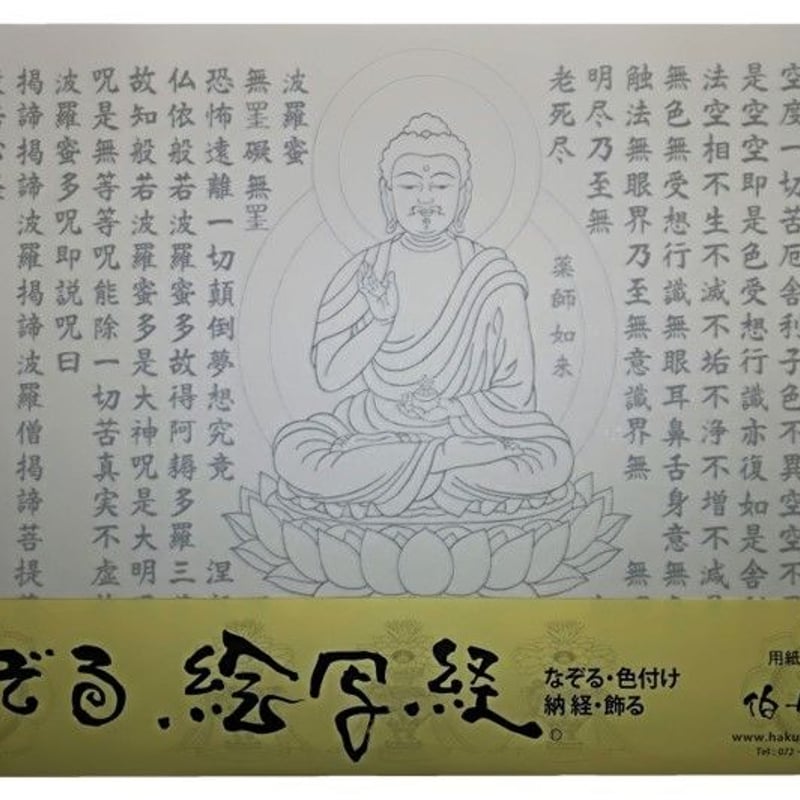 空度一切苦厄舎利子色不異空空不
是空空即是色受想行識亦復如是舎
法空相不生不滅不垢不浄不増不減
無色無受想行識無眼耳鼻舌身意無
触法無眼界乃至無意識界無 無
明尽乃至無
老死尽
薬師如来
波羅蜜
無罣礙無罣
恐怖遠離一切顛倒夢想究竟 涅
仏依般若波羅蜜多故得阿耨多羅三
故知般若波羅蜜多是大神呪是大明
呪是無等等呪能除一切苦真実不虚
波羅蜜多呪即説呪曰
掲諦掲諦波羅掲諦波羅僧掲諦菩提
ぞる.絵写経
なぞる・色付け
納経・飾る
用紙
伯
www.haku
Tel : 072-